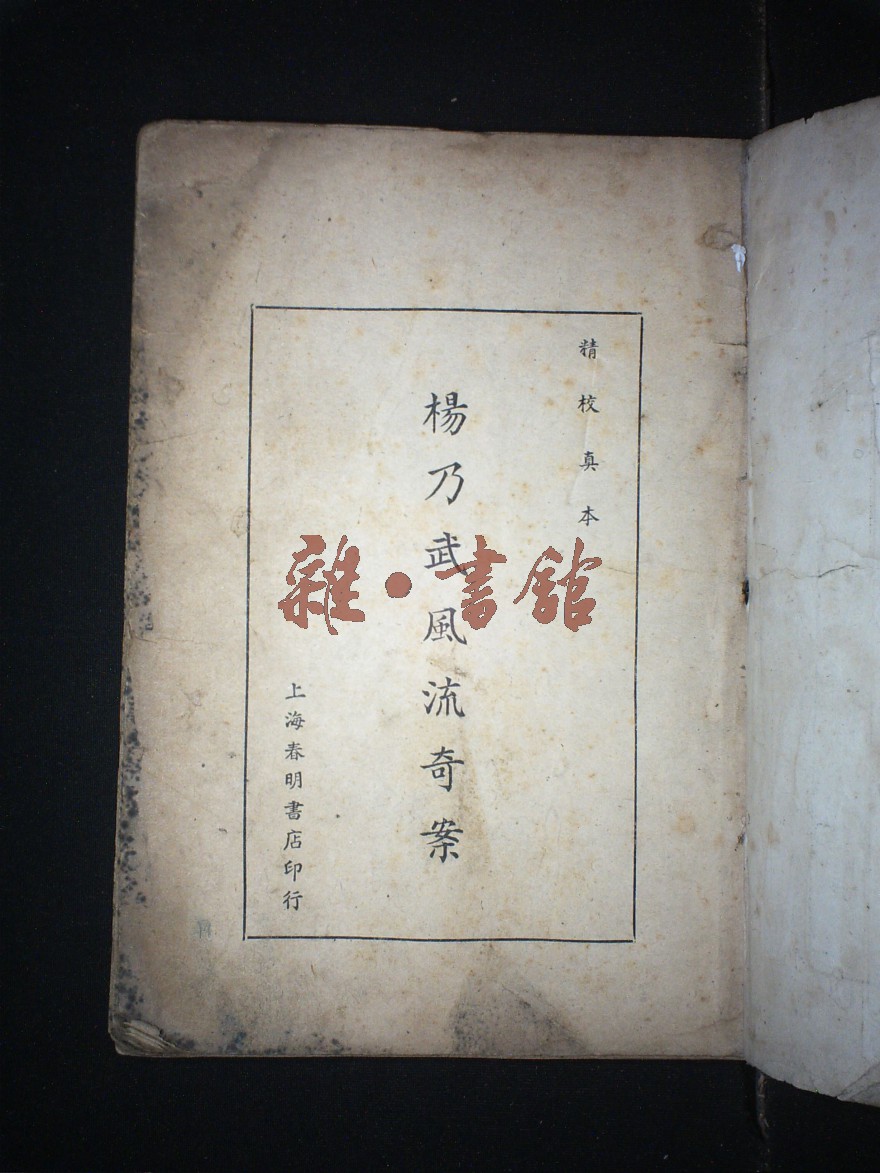 精校真本
楊乃武風流奇案
上海春明書店印行
雜·書館